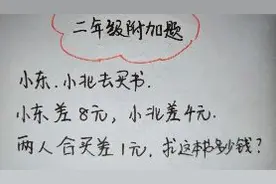 二年级附加题
小东、小北去买书
小东差8元，小北差4元．
两人合买差1元．求这本书多少钱？